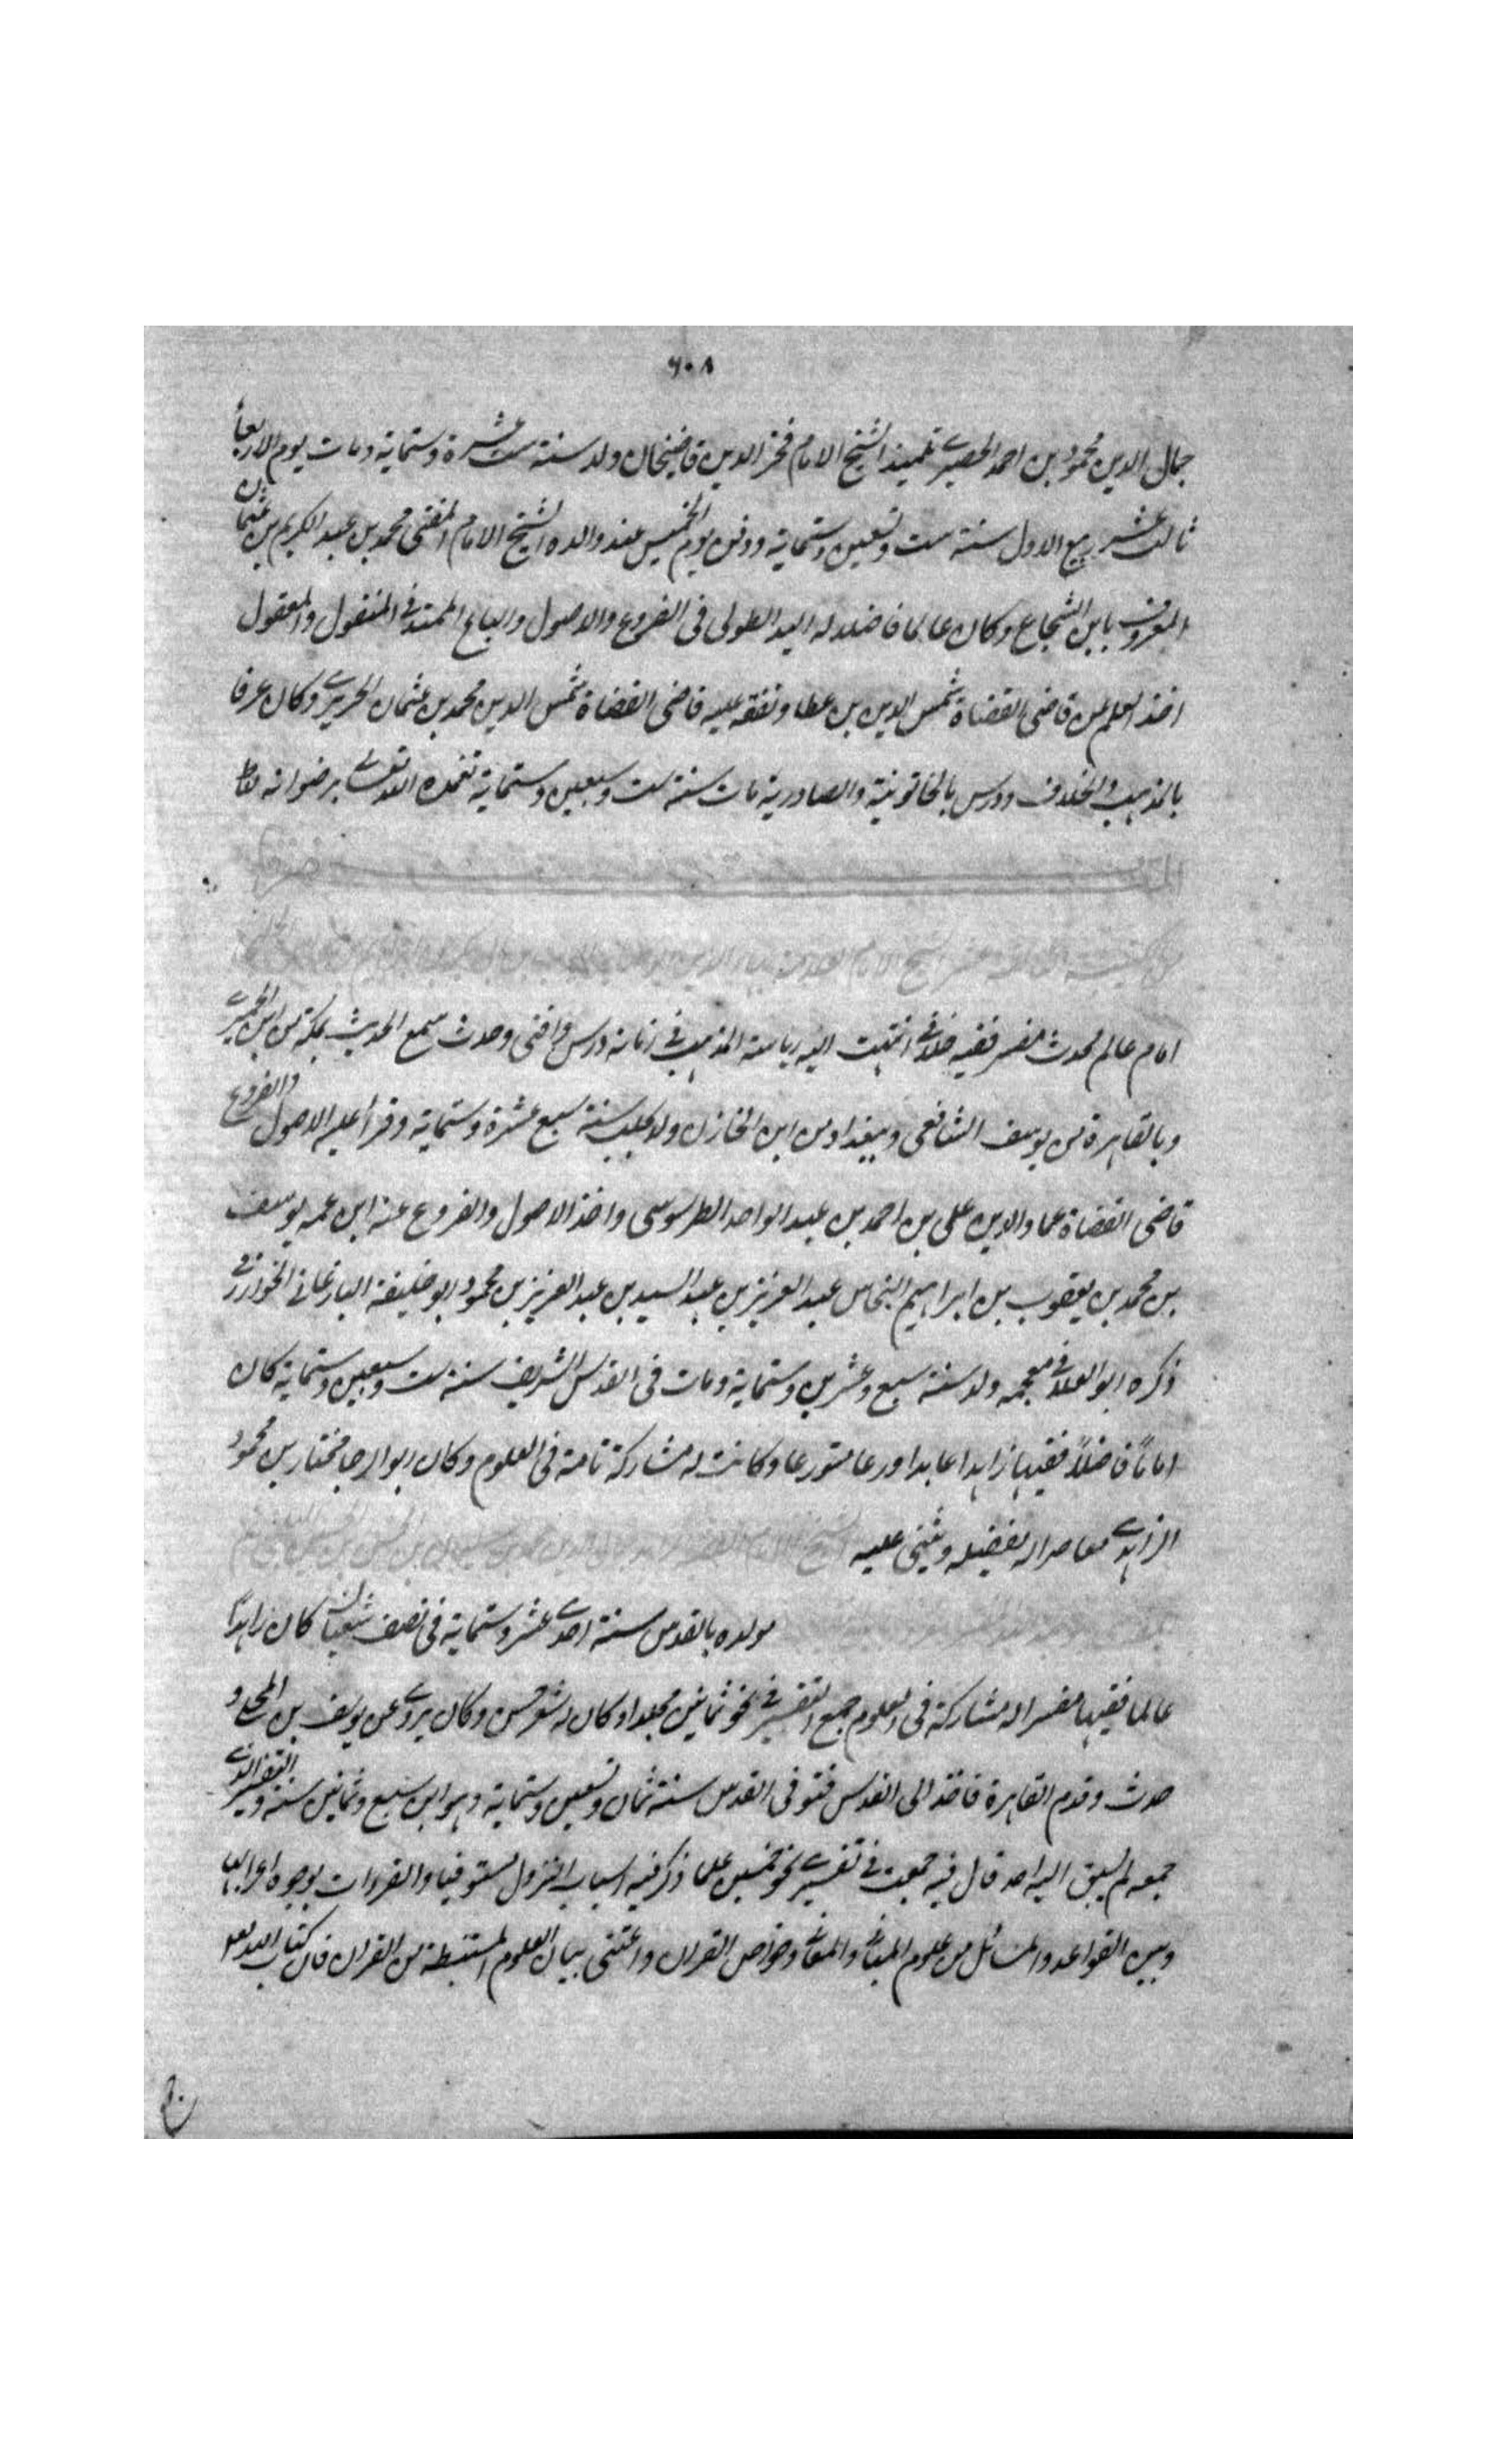 ٦٠٨
جمال الدين محمود بن احمد الحصيري تلميذ الشيخ الامام فخر الدين قاضيخان ولد سنة ست عشرة وستماية ومات يوم الاربعأ
ثالث عشر ربيع الاول سنة ست وتسعين وستماية ودفن يوم الخميس عند والده الشيخ الامام المفتى محمد بن عبد الكريم بن عثمان
المعروف بابن الشجاع وكان عالما فاضلا له اليد الطولى فى الفروع والاصول والباع الممتد فى المنقول والمعقول
اخذ العلم عن قاضى القضاة شمس الدين بن عطا وتفقه عليه قاضى القضاة شمس الدين محمد بن عثمان الحريرى وكان عرفا
بالمذهب والخلاف ودرس بالخاتونية والصادرية مات سنة ست وسبعين وستماية تغمده الله تعالى برضوانه
الشيخ الامام
امام عالم محدث مفسر فقيه خلافى انتهت اليه رياسة المذهب فى زمانه درس وافتى وحدث سمع الحديث بمكة من ابن الحميرى
وبالقاهرة من يوسف الشافعى وببغداد من ابن الخازن ولد بحلب سنة سبع عشرة وستماية وقرا عليه الاصول والفروع
قاضى القضاة عماد الدين على بن احمد بن عبد الواحد الطرسوسى واخذ الاصول والفروع عنه ابن عمه يوسف
بن محمد بن يعقوب بن ابراهيم النحاس عبد العزيز بن عبد السيد بن عبد العزيز بن محمود ابو خليفة البارغانى الخوارزمى
ذكره ابو العلا فى معجمه ولد سنة سبع وعشرين وستماية ومات فى القدس الشريف سنة ست وسبعين وستماية كان
اماماً فاضلاً فقيها زاهدا عابدا ورعا متورعا وكانت له مشاركة تامة فى العلوم وكان ابو الرجا مختار بن محمود
الزاهدى معاصرا له يفضله ويثنى عليه الشيخ الامام
مولده بالقدس سنة احدى عشر وستماية فى نصف شعبان كان زاهدًا
عالما فقيها مفسرا له مشاركة فى العلوم جمع التفسير فى نحو ثمانين مجلدا وكان له شعر حسن وكان يروى عن يوسف بن المجلى و
حدث وقدم القاهرة فاخذ الى القدس فتوفى القدس سنة ثمان وتسعين وستماية وهو ابن سبع وثمانين سنة وتفسير الذى
جمعه لم يسبق اليه احد قال فيه جمعت فى تفسيرى نحو خمسين علما ذكر فيه اسباب النزول مستوفيا والقراءات بوجوه اعرابها
وبين القواعد والمسائل من علوم المبانى والمعانى وخواص القران واعتنى ببيان العلوم المستنبطة من القران فان كتاب الله